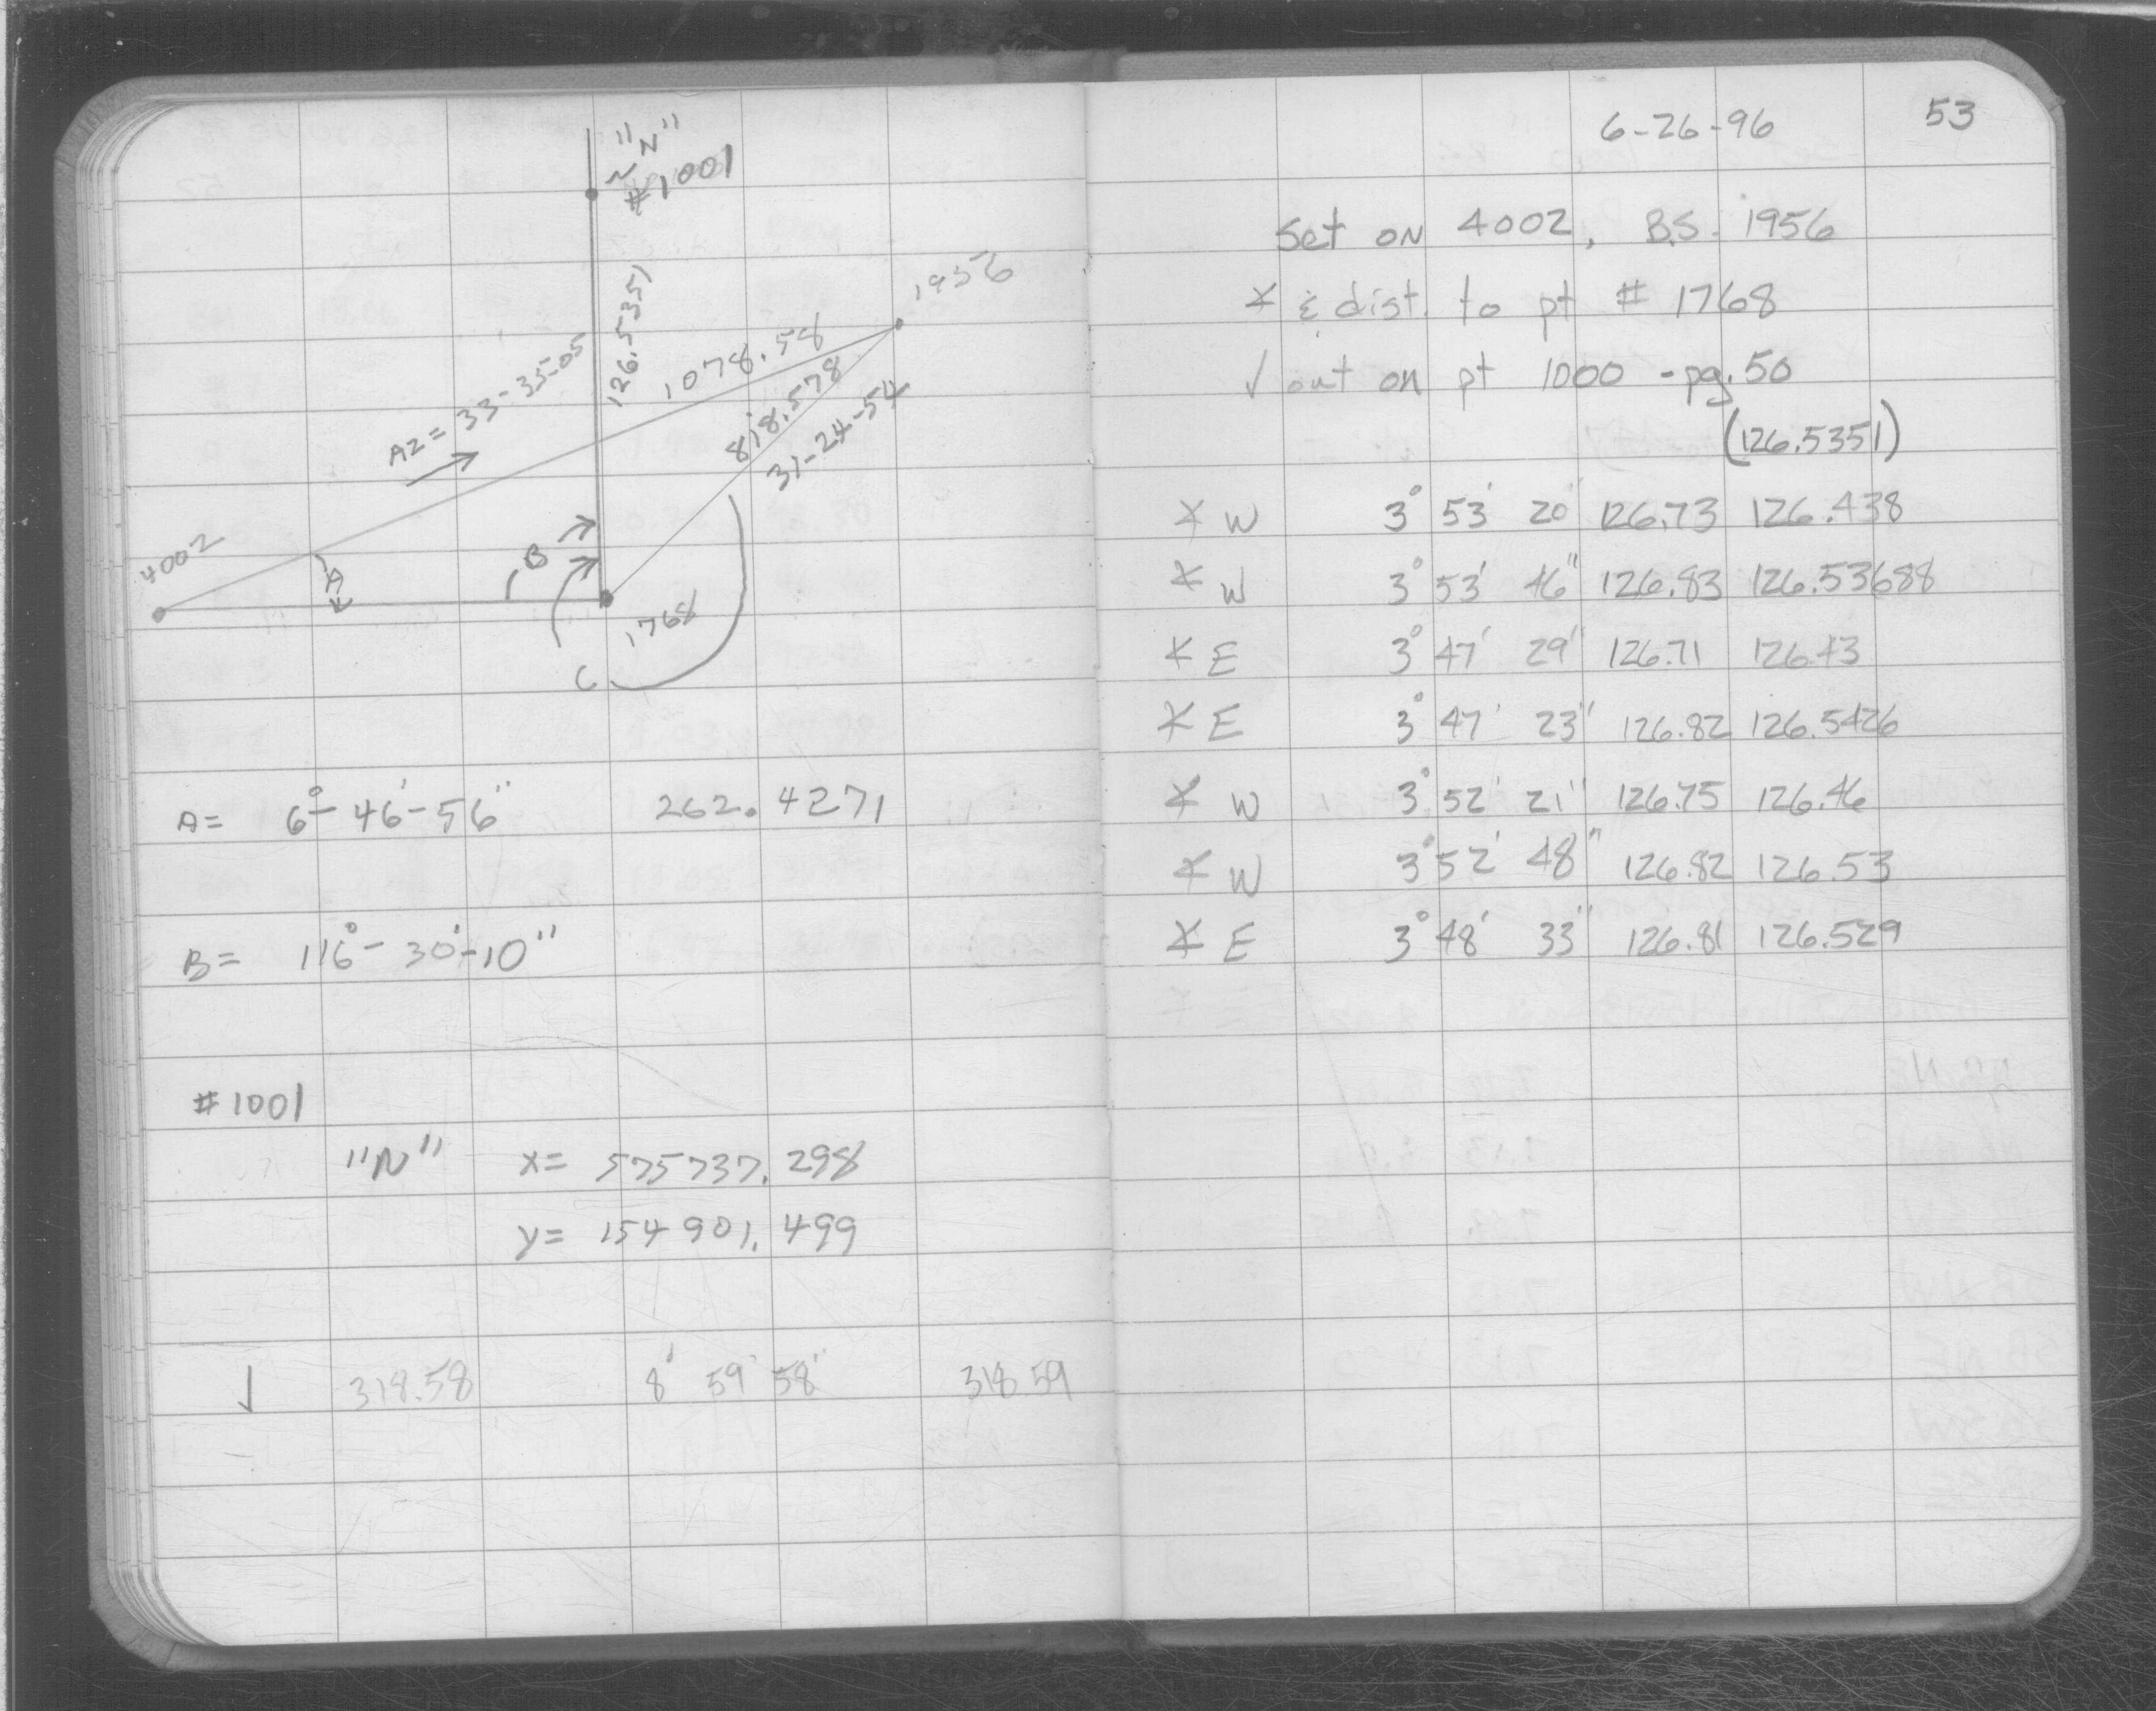 "N"
#1001
126.5351
1956
1078.58
Az = 33-35-05
818.578
31-24-54
4002
A
B
1768
C
A= 6°-46'-56" 262.4271
B= 116°-30'-10"
#1001
"N" x= 575737.298
y= 154901.499
√ 318.58 8° 59' 58" 318.59
6-26-96 53
Set on 4002, B.S. 1956
∠ & dist. to pt # 1768
√ out on pt 1000 - pg. 50
(126.5351)
∠ W 3° 53' 20" 126.73 126.438
∠ W 3° 53' 46" 126.83 126.53688
∠ E 3° 47' 29" 126.71 126.43
∠ E 3° 47' 23" 126.82 126.5426
∠ W 3° 52' 21" 126.75 126.46
∠ W 3° 52' 48" 126.82 126.53
∠ E 3° 48' 33" 126.81 126.529